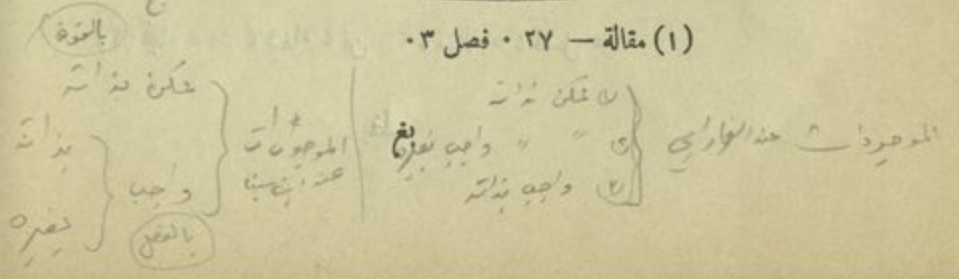 (١) مقالة — ٢٧ ٠ فصل ٣ ٠
الموجودات عند الفارابي
(١ ممكن بذاته
(٢ " " واجب بغيره
(٣ واجب بذاته
الموجودات
عند ابن سينا
بالقوة
ممكن بذاته
واجب
بالفعل
بذاته
بغيره